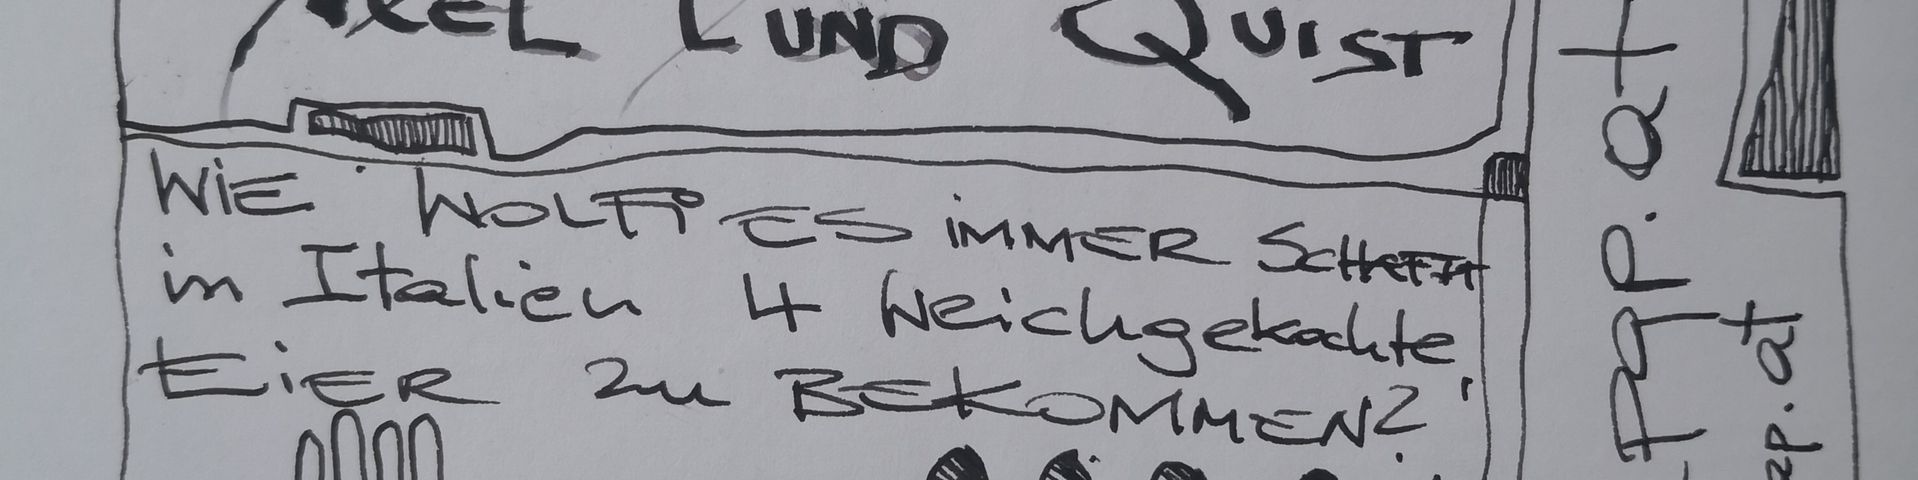 AXEL LUND QUIST
WiE WOLFi ES iMMER SCHAFFT
in Italien 4 Weichgekochte
EiER zu BEKOMMEN?
pqp.at
ap.at